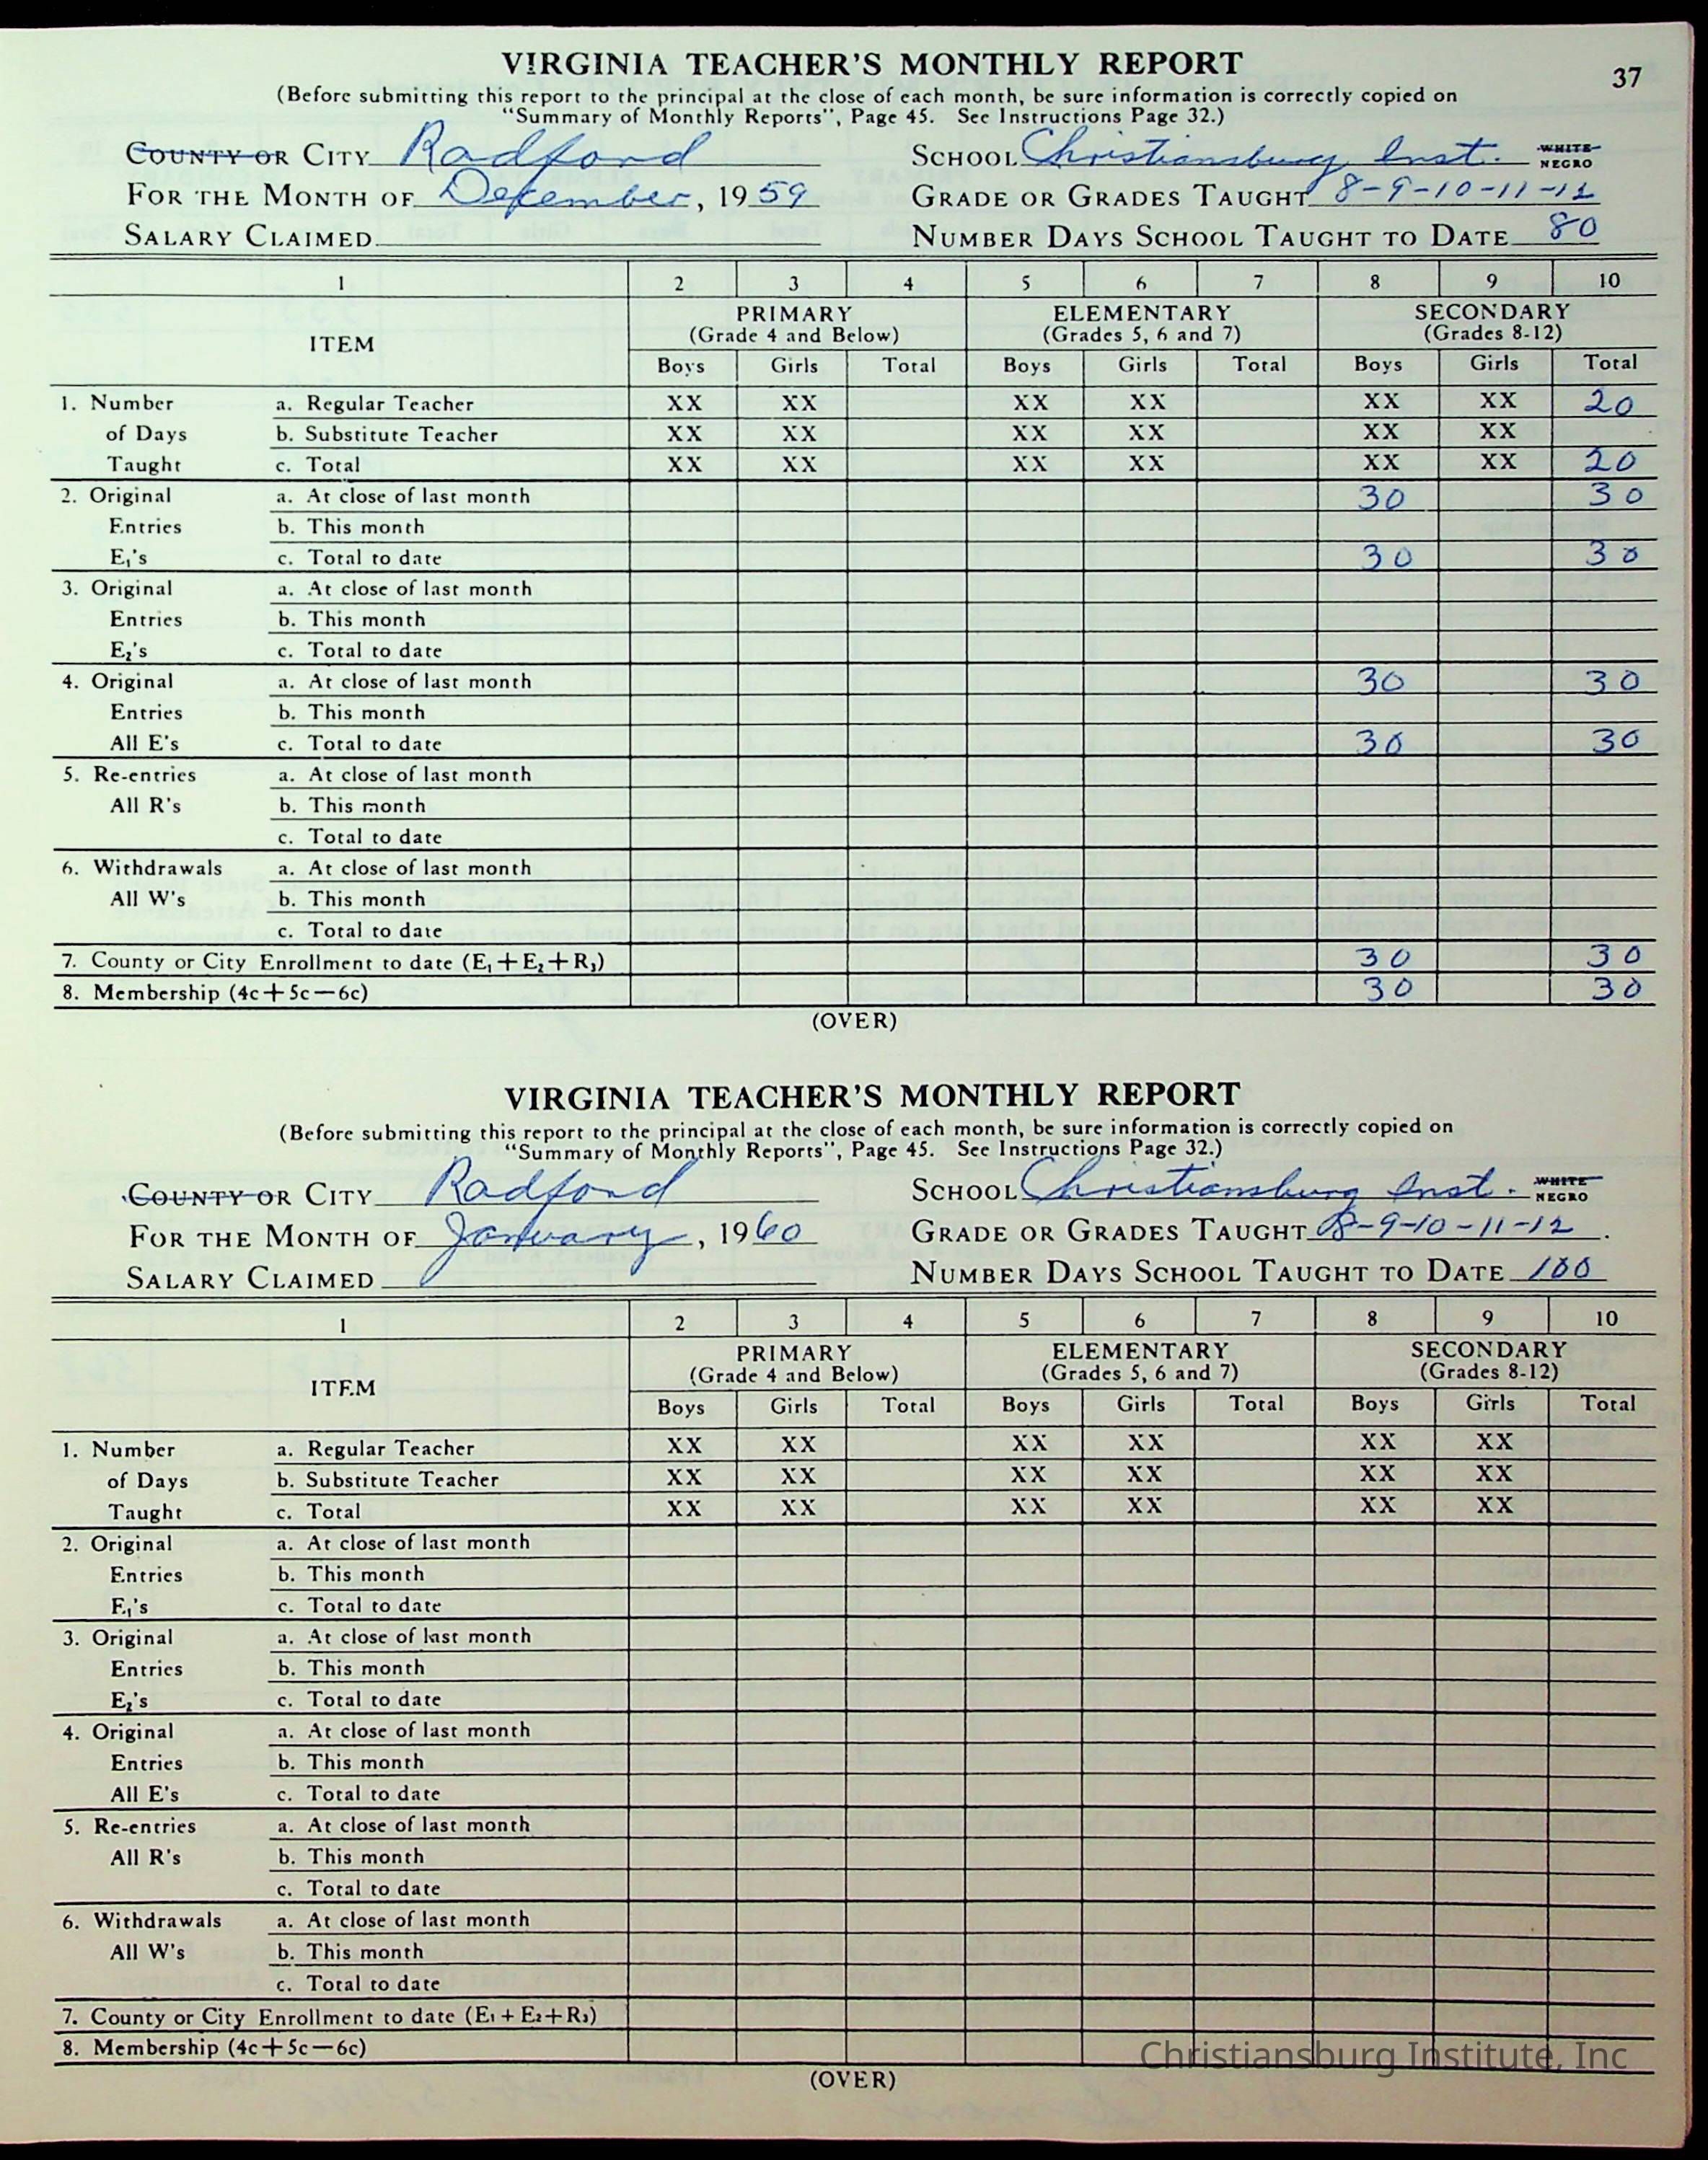 VIRGINIA TEACHER'S MONTHLY REPORT
37
(Before submitting this report to the principal at the close of each month, be sure information is correctly copied on
"Summary of Monthly Reports", Page 45. See Instructions Page 32.)
COUNTY OR CITY Radford SCHOOL Christiansburg Inst. WHITE NEGRO
FOR THE MONTH OF December, 1959 GRADE OR GRADES TAUGHT 8-9-10-11-12
SALARY CLAIMED NUMBER DAYS SCHOOL TAUGHT TO DATE 80
1 2 3 4 5 6 7 8 9 10
PRIMARY ELEMENTARY SECONDARY
ITEM (Grade 4 and Below) (Grades 5, 6 and 7) (Grades 8-12)
Boys Girls Total Boys Girls Total Boys Girls Total
1. Number a. Regular Teacher XX XX XX XX XX XX 20
of Days b. Substitute Teacher XX XX XX XX XX XX
Taught c. Total XX XX XX XX XX XX 20
2. Original a. At close of last month 30 30
Entries b. This month
E1's c. Total to date 30 30
3. Original a. At close of last month
Entries b. This month
E2's c. Total to date
4. Original a. At close of last month 30 30
Entries b. This month
All E's c. Total to date 30 30
5. Re-entries a. At close of last month
All R's b. This month
c. Total to date
6. Withdrawals a. At close of last month
All W's b. This month
c. Total to date
7. County or City Enrollment to date (E1+E2+R3) 30 30
8. Membership (4c+5c—6c) 30 30
(OVER)
VIRGINIA TEACHER'S MONTHLY REPORT
(Before submitting this report to the principal at the close of each month, be sure information is correctly copied on
"Summary of Monthly Reports", Page 45. See Instructions Page 32.)
COUNTY OR CITY Radford SCHOOL Christiansburg Inst. WHITE NEGRO
FOR THE MONTH OF January, 1960 GRADE OR GRADES TAUGHT 8-9-10-11-12.
SALARY CLAIMED NUMBER DAYS SCHOOL TAUGHT TO DATE 100
1 2 3 4 5 6 7 8 9 10
PRIMARY ELEMENTARY SECONDARY
ITEM (Grade 4 and Below) (Grades 5, 6 and 7) (Grades 8-12)
Boys Girls Total Boys Girls Total Boys Girls Total
1. Number a. Regular Teacher XX XX XX XX XX XX
of Days b. Substitute Teacher XX XX XX XX XX XX
Taught c. Total XX XX XX XX XX XX
2. Original a. At close of last month
Entries b. This month
E1's c. Total to date
3. Original a. At close of last month
Entries b. This month
E2's c. Total to date
4. Original a. At close of last month
Entries b. This month
All E's c. Total to date
5. Re-entries a. At close of last month
All R's b. This month
c. Total to date
6. Withdrawals a. At close of last month
All W's b. This month
c. Total to date
7. County or City Enrollment to date (E1+E2+R3)
8. Membership (4c+5c—6c)
Christiansburg Institute, Inc
(OVER)